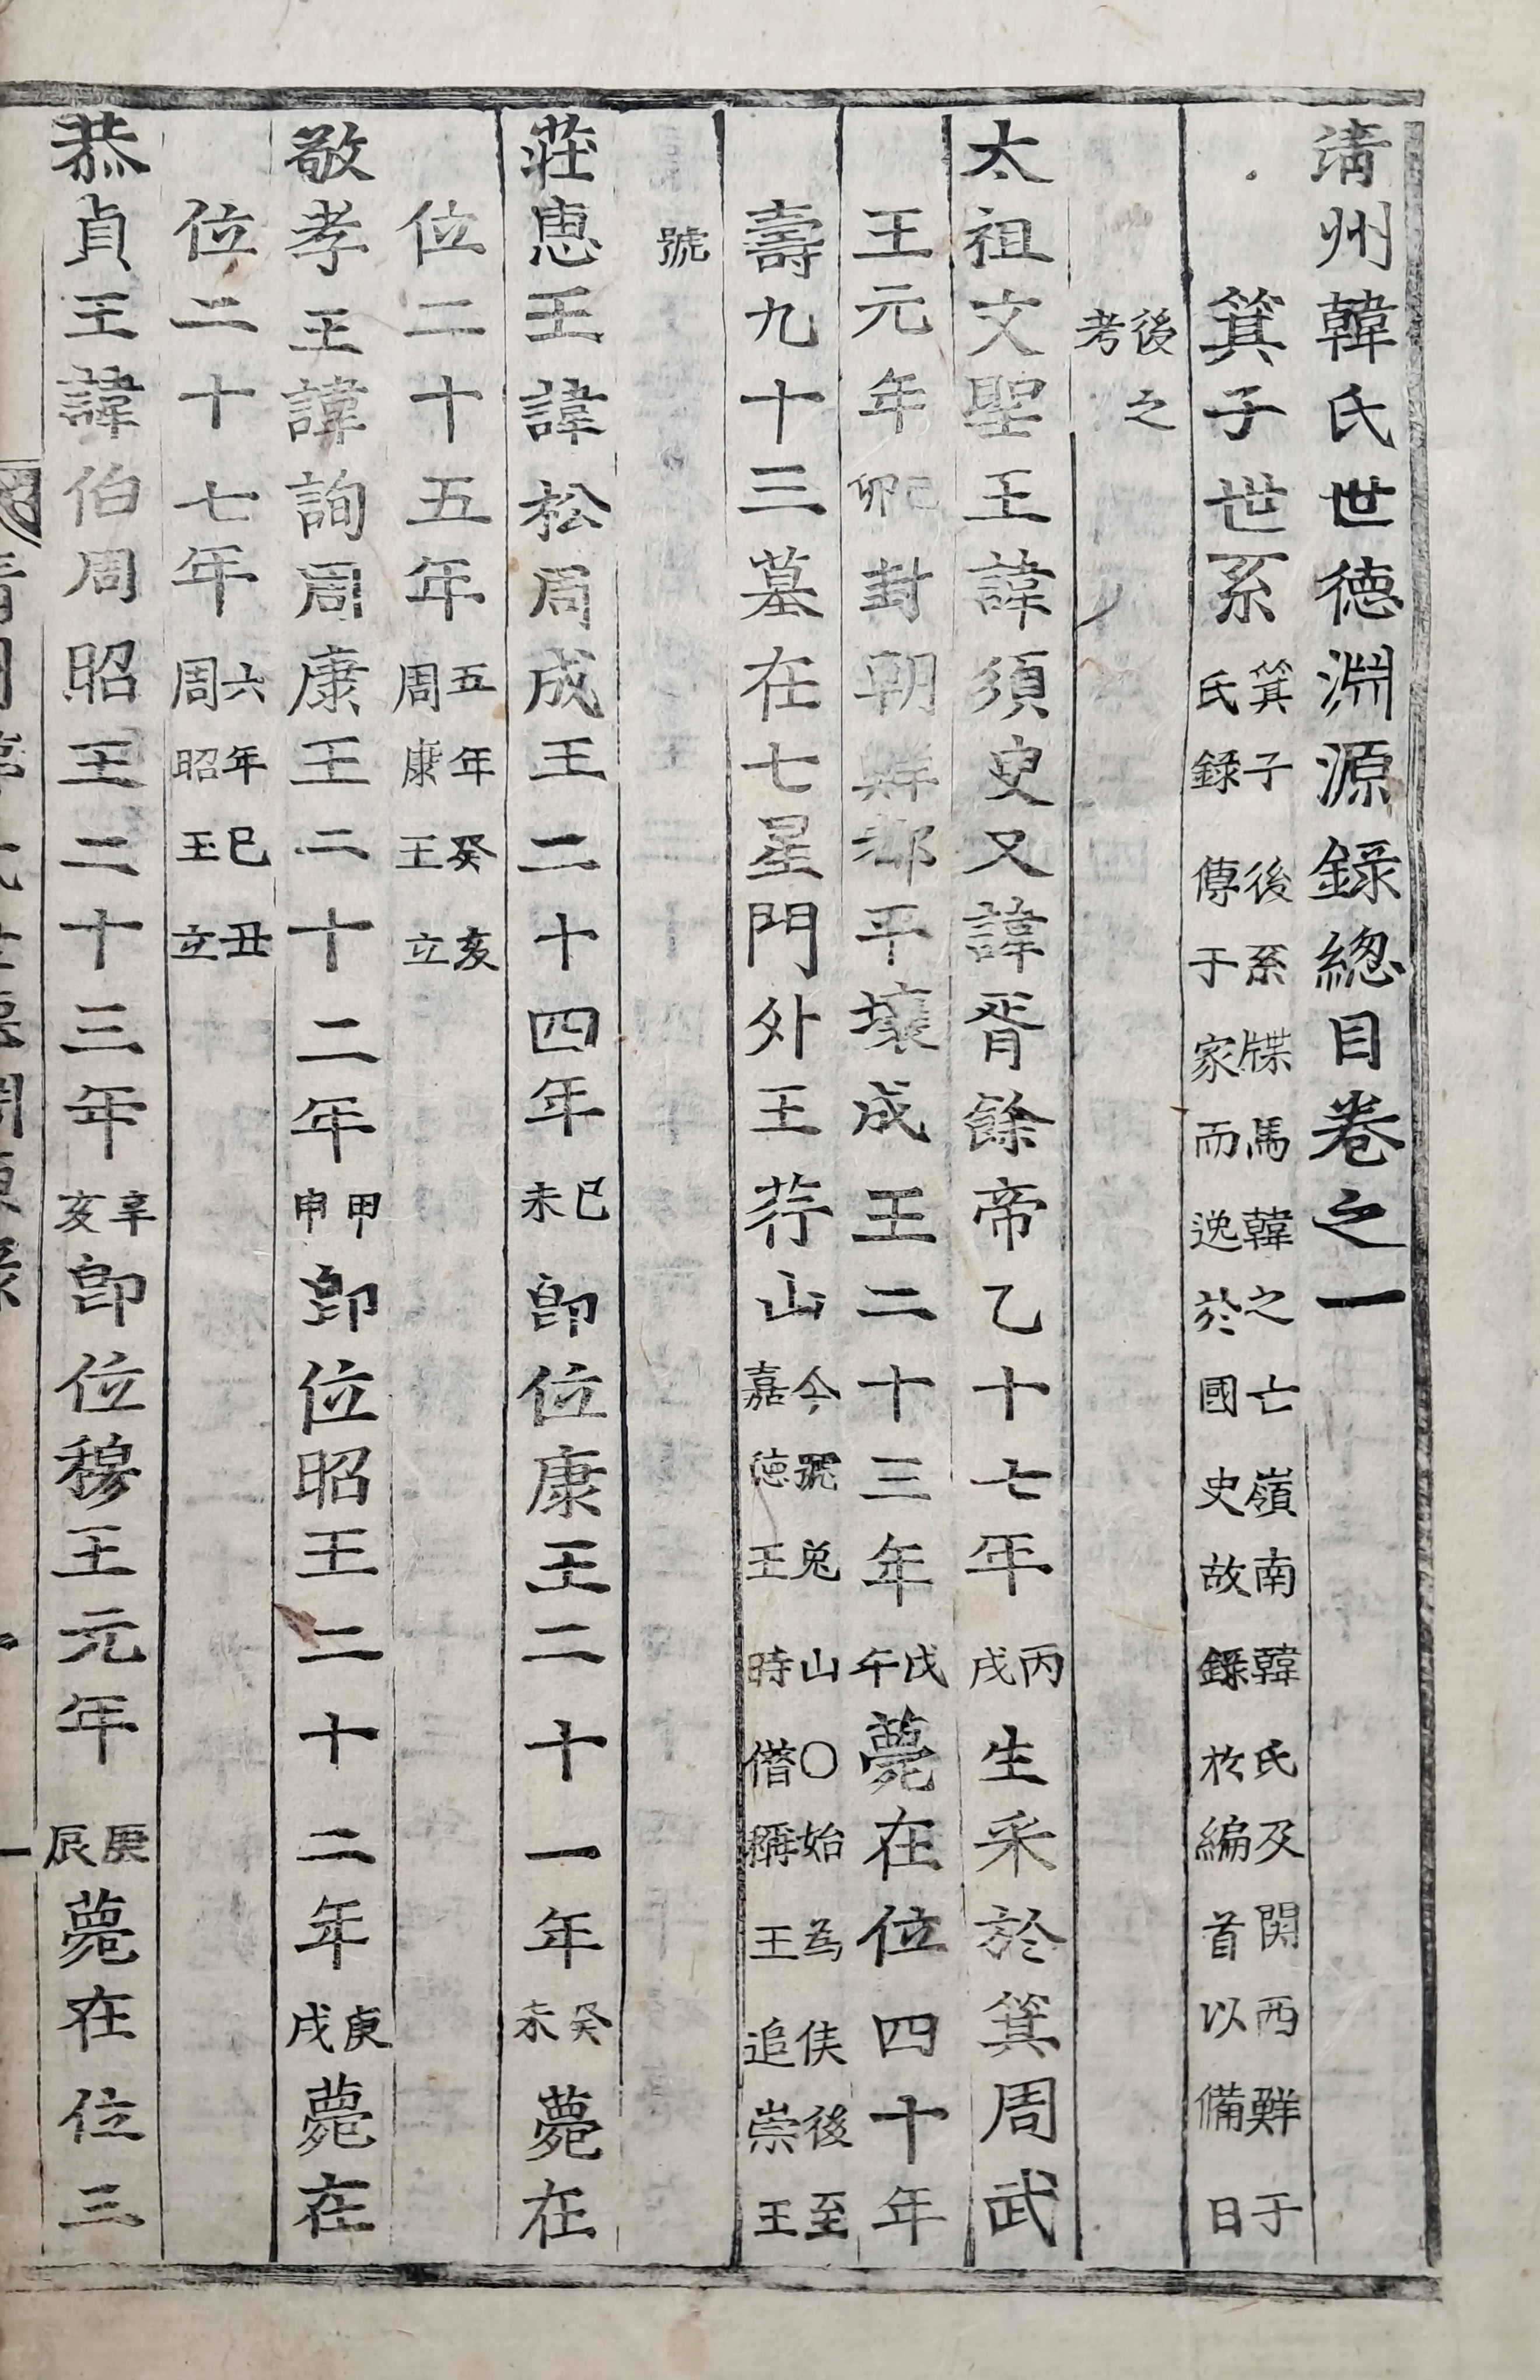 清州韓氏世德淵源錄緫目卷之一
箕子世系 箕子後系牒馬韓之亡嶺南韓氏及関西鮮于
氏錄傳于家而逸於國史故錄於編首以備日
後之
考
太祖文聖王諱須臾又諱胥餘帝乙十七年丙戌生采於箕周武
王元年己卯封朝鮮都平壤成王二十三年戊午薨在位四十年
壽九十三墓在七星門外王荇山 今號兎山〇始為侯後至
嘉德王時僭稱王追崇王
號
莊惠王諱松周成王二十四年己未即位康王二十一年癸未薨在
位二十五年 五年癸亥
周康王立
敬孝王諱詢周康王二十二年甲申即位昭王二十二年庚戌薨在
位二十七年 六年巳丑
周昭王立
恭貞王諱伯周昭王二十三年辛亥即位穆王元年庚辰薨在位三